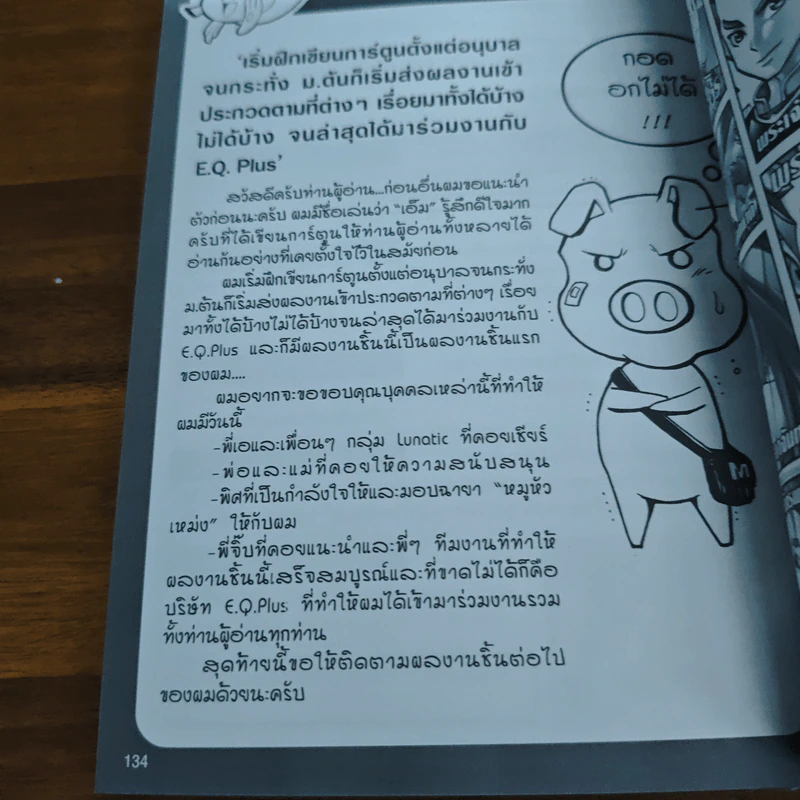 'เริ่มฝึกเขียนการ์ตูนตั้งแต่อนุบาล
จนกระทั่ง ม.ต้นก็เริ่มส่งผลงานเข้า
ประกวดตามที่ต่างๆ เรื่อยมาทั้งได้บ้าง
ไม่ได้บ้าง จนล่าสุดได้มาร่วมงานกับ
E.Q. Plus'
กอด
อกไม่ได้
!!!
สวัสดีครับท่านผู้อ่าน...ก่อนอื่นผมขอแนะนำ
ตัวก่อนนะครับ ผมมีชื่อเล่นว่า "เอ็ม" รู้สึกดีใจมาก
ครับที่ได้เขียนการ์ตูนให้ท่านผู้อ่านทั้งหลายได้
อ่านกันอย่างที่เคยตั้งใจไว้ในสมัยก่อน
ผมเริ่มฝึกเขียนการ์ตูนตั้งแต่อนุบาลจนกระทั่ง
ม.ต้นก็เริ่มส่งผลงานเข้าประกวดตามที่ต่างๆ เรื่อย
มาทั้งได้บ้างไม่ได้บ้างจนล่าสุดได้มาร่วมงานกับ
E.Q.Plus และก็มีผลงานชิ้นนี้เป็นผลงานชิ้นแรก
ของผม....
ผมอยากจะขอขอบคุณบุคคลเหล่านี้ที่ทำให้
ผมมีวันนี้
-พี่เอและเพื่อนๆ กลุ่ม Lunatic ที่คอยเชียร์
-พ่อและแม่ที่คอยให้ความสนับสนุน
-พิศที่เป็นกำลังใจให้และมอบฉายา "หมูหัว
เหม่ง" ให้กับผม
-พี่จิ๊บที่คอยแนะนำและพี่ๆ ทีมงานที่ทำให้
ผลงานชิ้นนี้เสร็จสมบูรณ์และที่ขาดไม่ได้ก็คือ
บริษัท E.Q.Plus ที่ทำให้ผมได้เข้ามาร่วมงานรวม
ทั้งท่านผู้อ่านทุกท่าน
สุดท้ายนี้ขอให้ติดตามผลงานชิ้นต่อไป
ของผมด้วยนะครับ
M
134